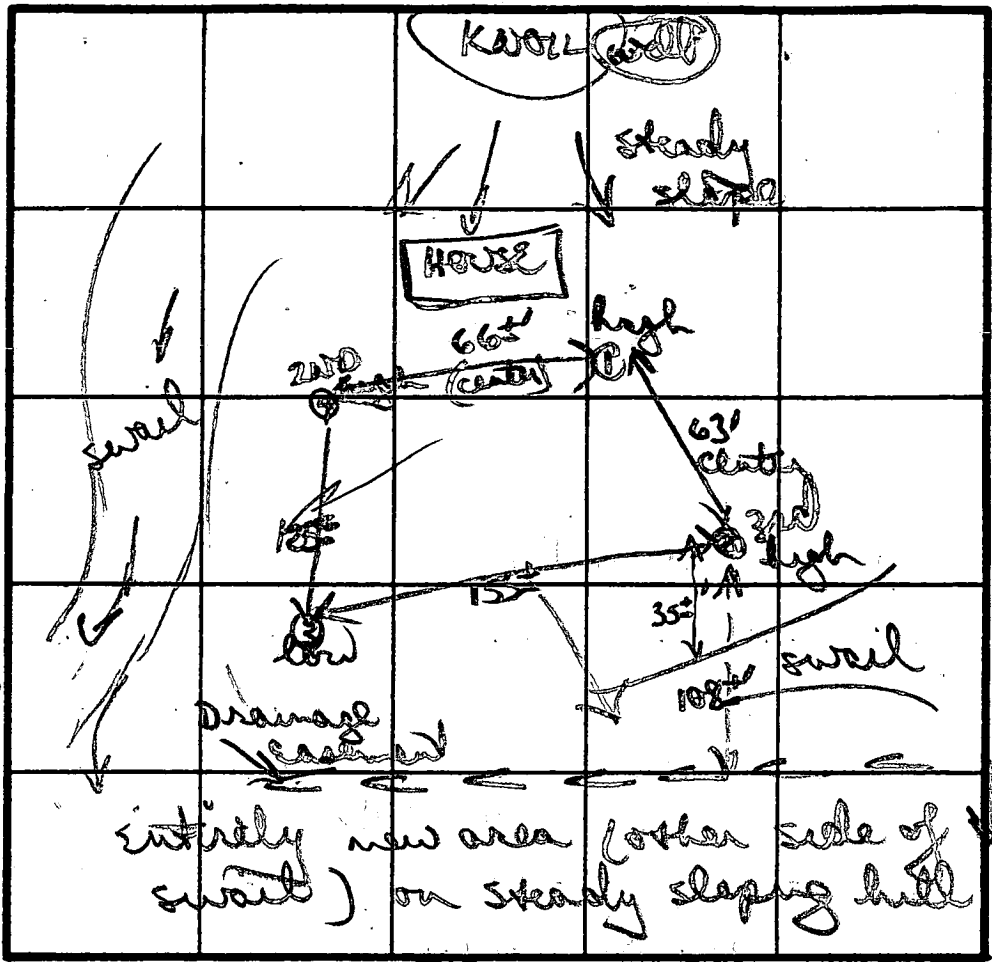 KNOLL
steady
slope
HOUSE
high
66±'
(center)
2ND
swail
63'
center
3rd
high
155±
35±
low
swail
108±'
Drainage
easement
Entirely new area (other side of
swail) on steady sloping hill